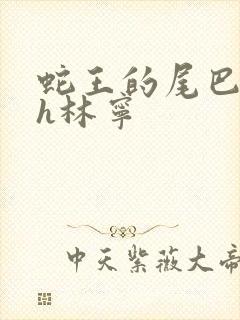 蛇王的尾巴
h林寜
中天紫薇大帝